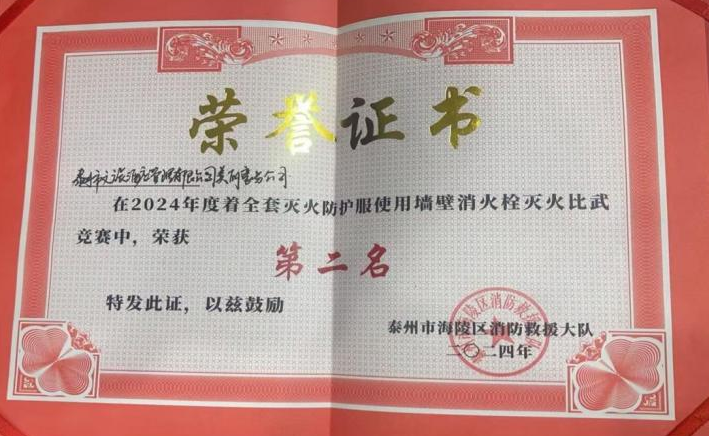 荣誉证书
泰州市文旅酒店管理有限公司美
在2024年度着全套灭火防护服使用墙壁消火栓灭火比武
竞赛中，荣获
第二名
特发此证，以兹鼓励
泰州市海陵区消防救援大队
二〇二四年